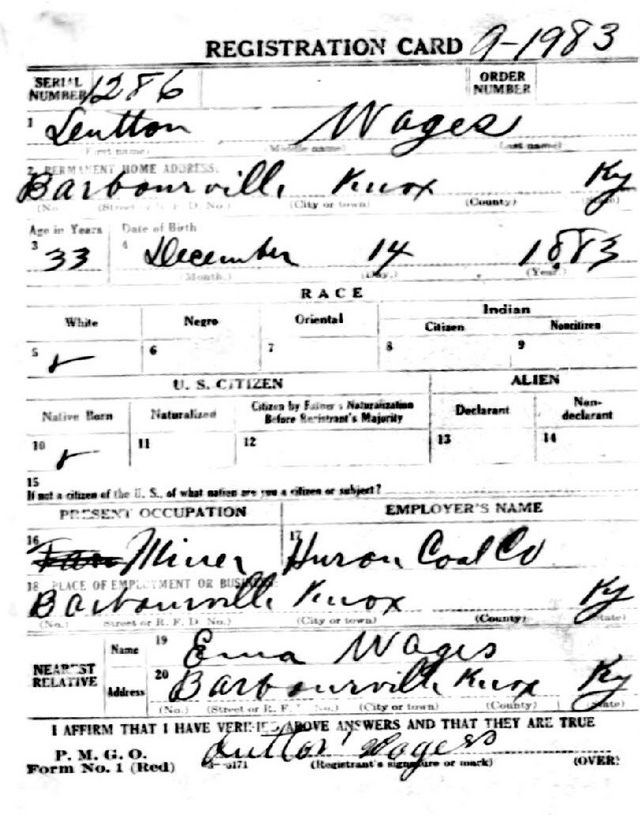 REGISTRATION CARD 9-1983
SERIAL NUMBER 1286 ORDER NUMBER
1 Leutton Wages
(First name) (Middle name) (Last name)
2 PERMANENT HOME ADDRESS:
Barbourville Knox Ky
(No.) (Street or R. F. D. No.) (City or town) (County) (State)
Age in Years Date of Birth
3 33 4 December 14 1883
(Month.) (Day.) (Year.)
RACE
White Negro Oriental Indian
Citizen Noncitizen
5 ✓ 6 7 8 9
U. S. CITIZEN ALIEN
Native Born Naturalized Citizen by Father's Naturalization Before Registrant's Majority Declarant Non-declarant
10 ✓ 11 12 13 14
15
If not a citizen of the U. S., of what nation are you a citizen or subject?
PRESENT OCCUPATION EMPLOYER'S NAME
16 Miner 17 Huron Coal Co
18 PLACE OF EMPLOYMENT OR BUSINESS:
Barbourville Knox Ky
(No.) (Street or R. F. D. No.) (City or town) (County) (State)
NEAREST RELATIVE Name 19 Ema Wages
Address 20 Barbourville Knox Ky
(No.) (Street or R. F. D. No.) (City or town) (County) (State)
I AFFIRM THAT I HAVE VERIFIED ABOVE ANSWERS AND THAT THEY ARE TRUE
P. M. G. O.
Form No. 1 (Red) (Registrant's signature or mark) (OVER)